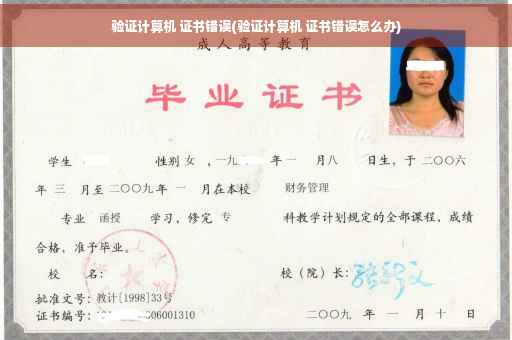 验证计算机 证书错误(验证计算机 证书错误怎么办)
成人高等教育
毕业证书
学生 性别 女 ，一九 年 一 月八 日生，于 二〇〇六
年 三 月至 二〇〇九 年 一 月在本校 财务管理
专业 函授 学习，修完 专 科教学计划规定的全部课程，成绩
合格，准予毕业。
校 名： 校（院）长：
批准文号：教计[1998]33号
证书编号： 06001310 二〇〇九 年 一 月 十 日